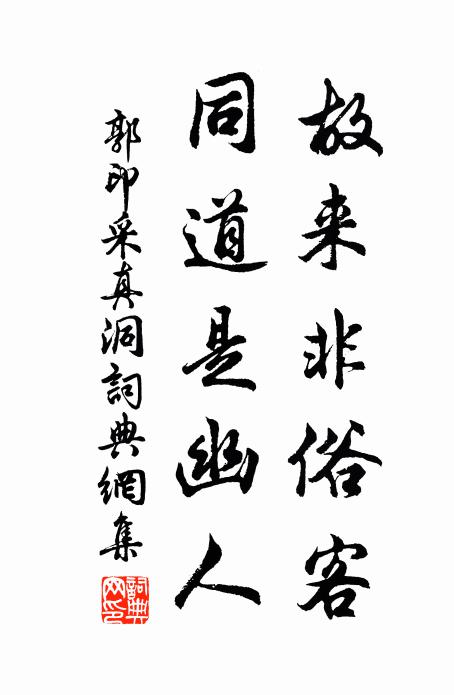 故来非俗客
同道是幽人
郭印采真洞詞典網集
詞典網印